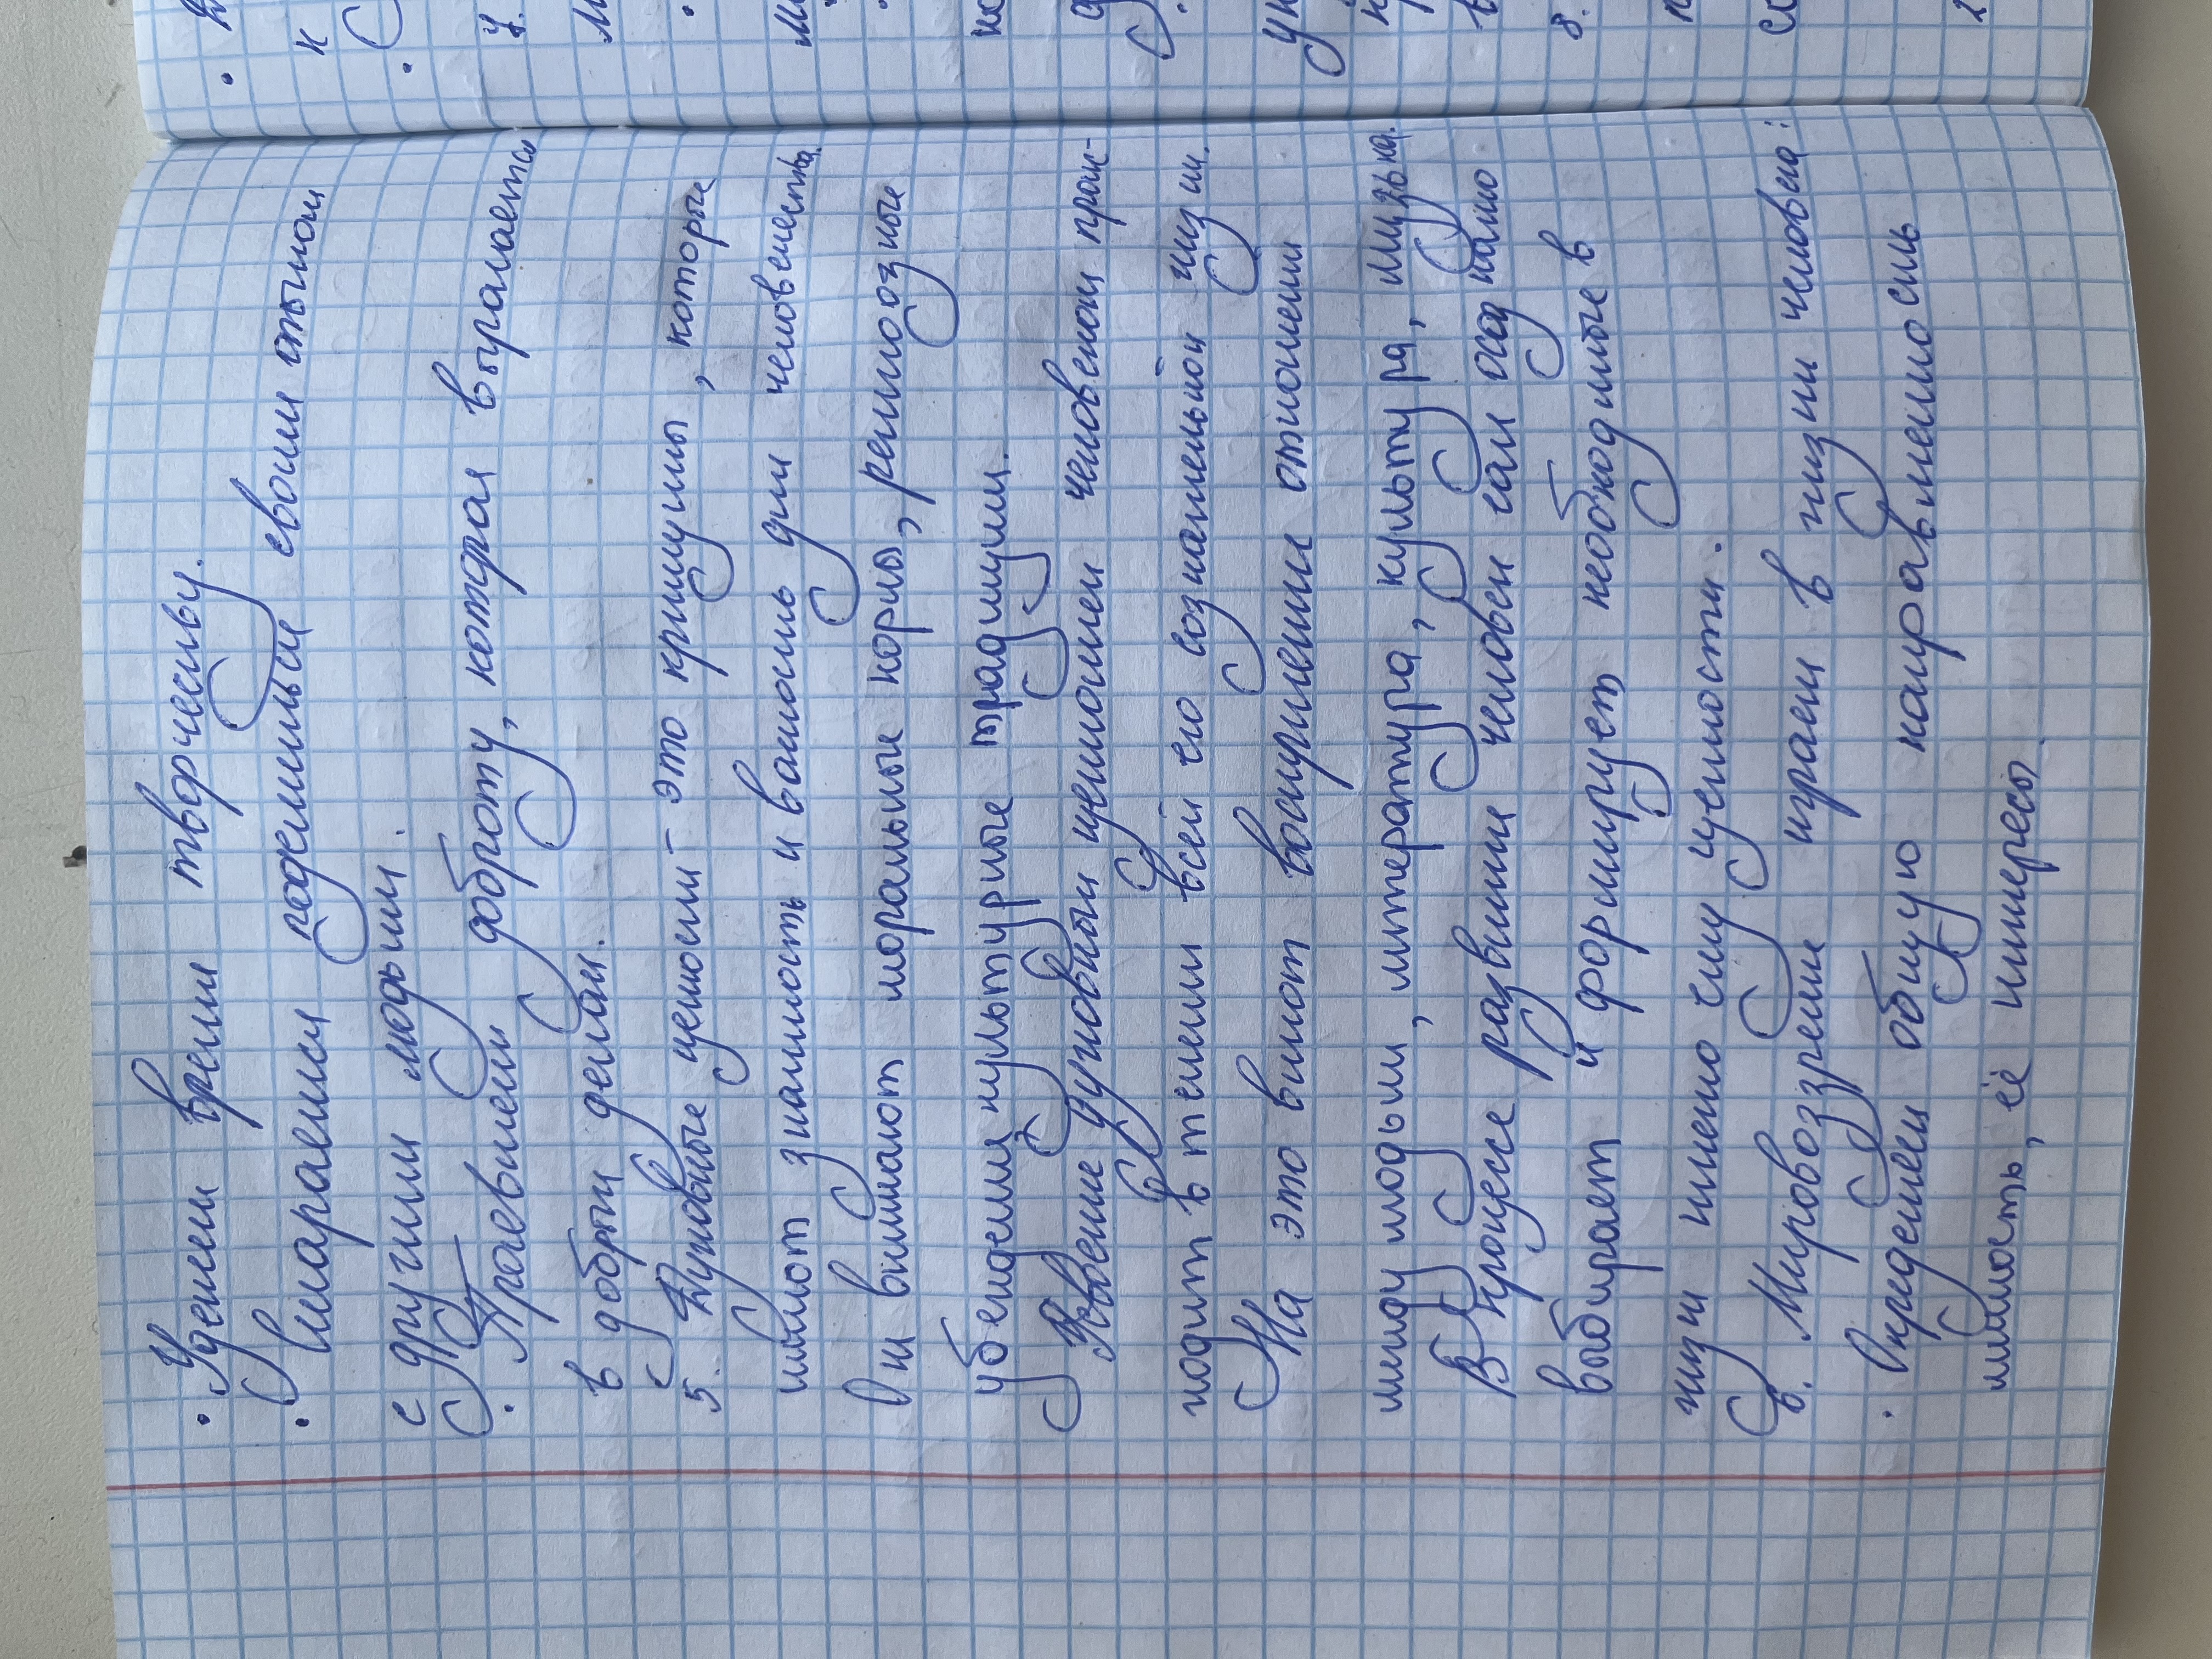 · Уделяем время творчеству.
· Стараемся поделиться своим опытом
с другими людьми.
· Проявляем доброту, которая выражается
в добрых делах.
5. Духовные ценности - это принципы, которые
имеют значимость и важность для человечества.
Они включают моральные нормы, религиозные
убеждения, культурные традиции.
Усвоение духовных ценностей человеком проис-
ходит в течении всей его сознательной жизни.
На это влияют воспитание, отношения
между людьми, литература, культура, музыка.
В процессе развития человек сам осознанно
выбирает и формирует необходимые в
жизни именно ему ценности.
6. Мировоззрение играет в жизни человека:
· Определяет общую направленность
личность, её интересы.
7.
8.